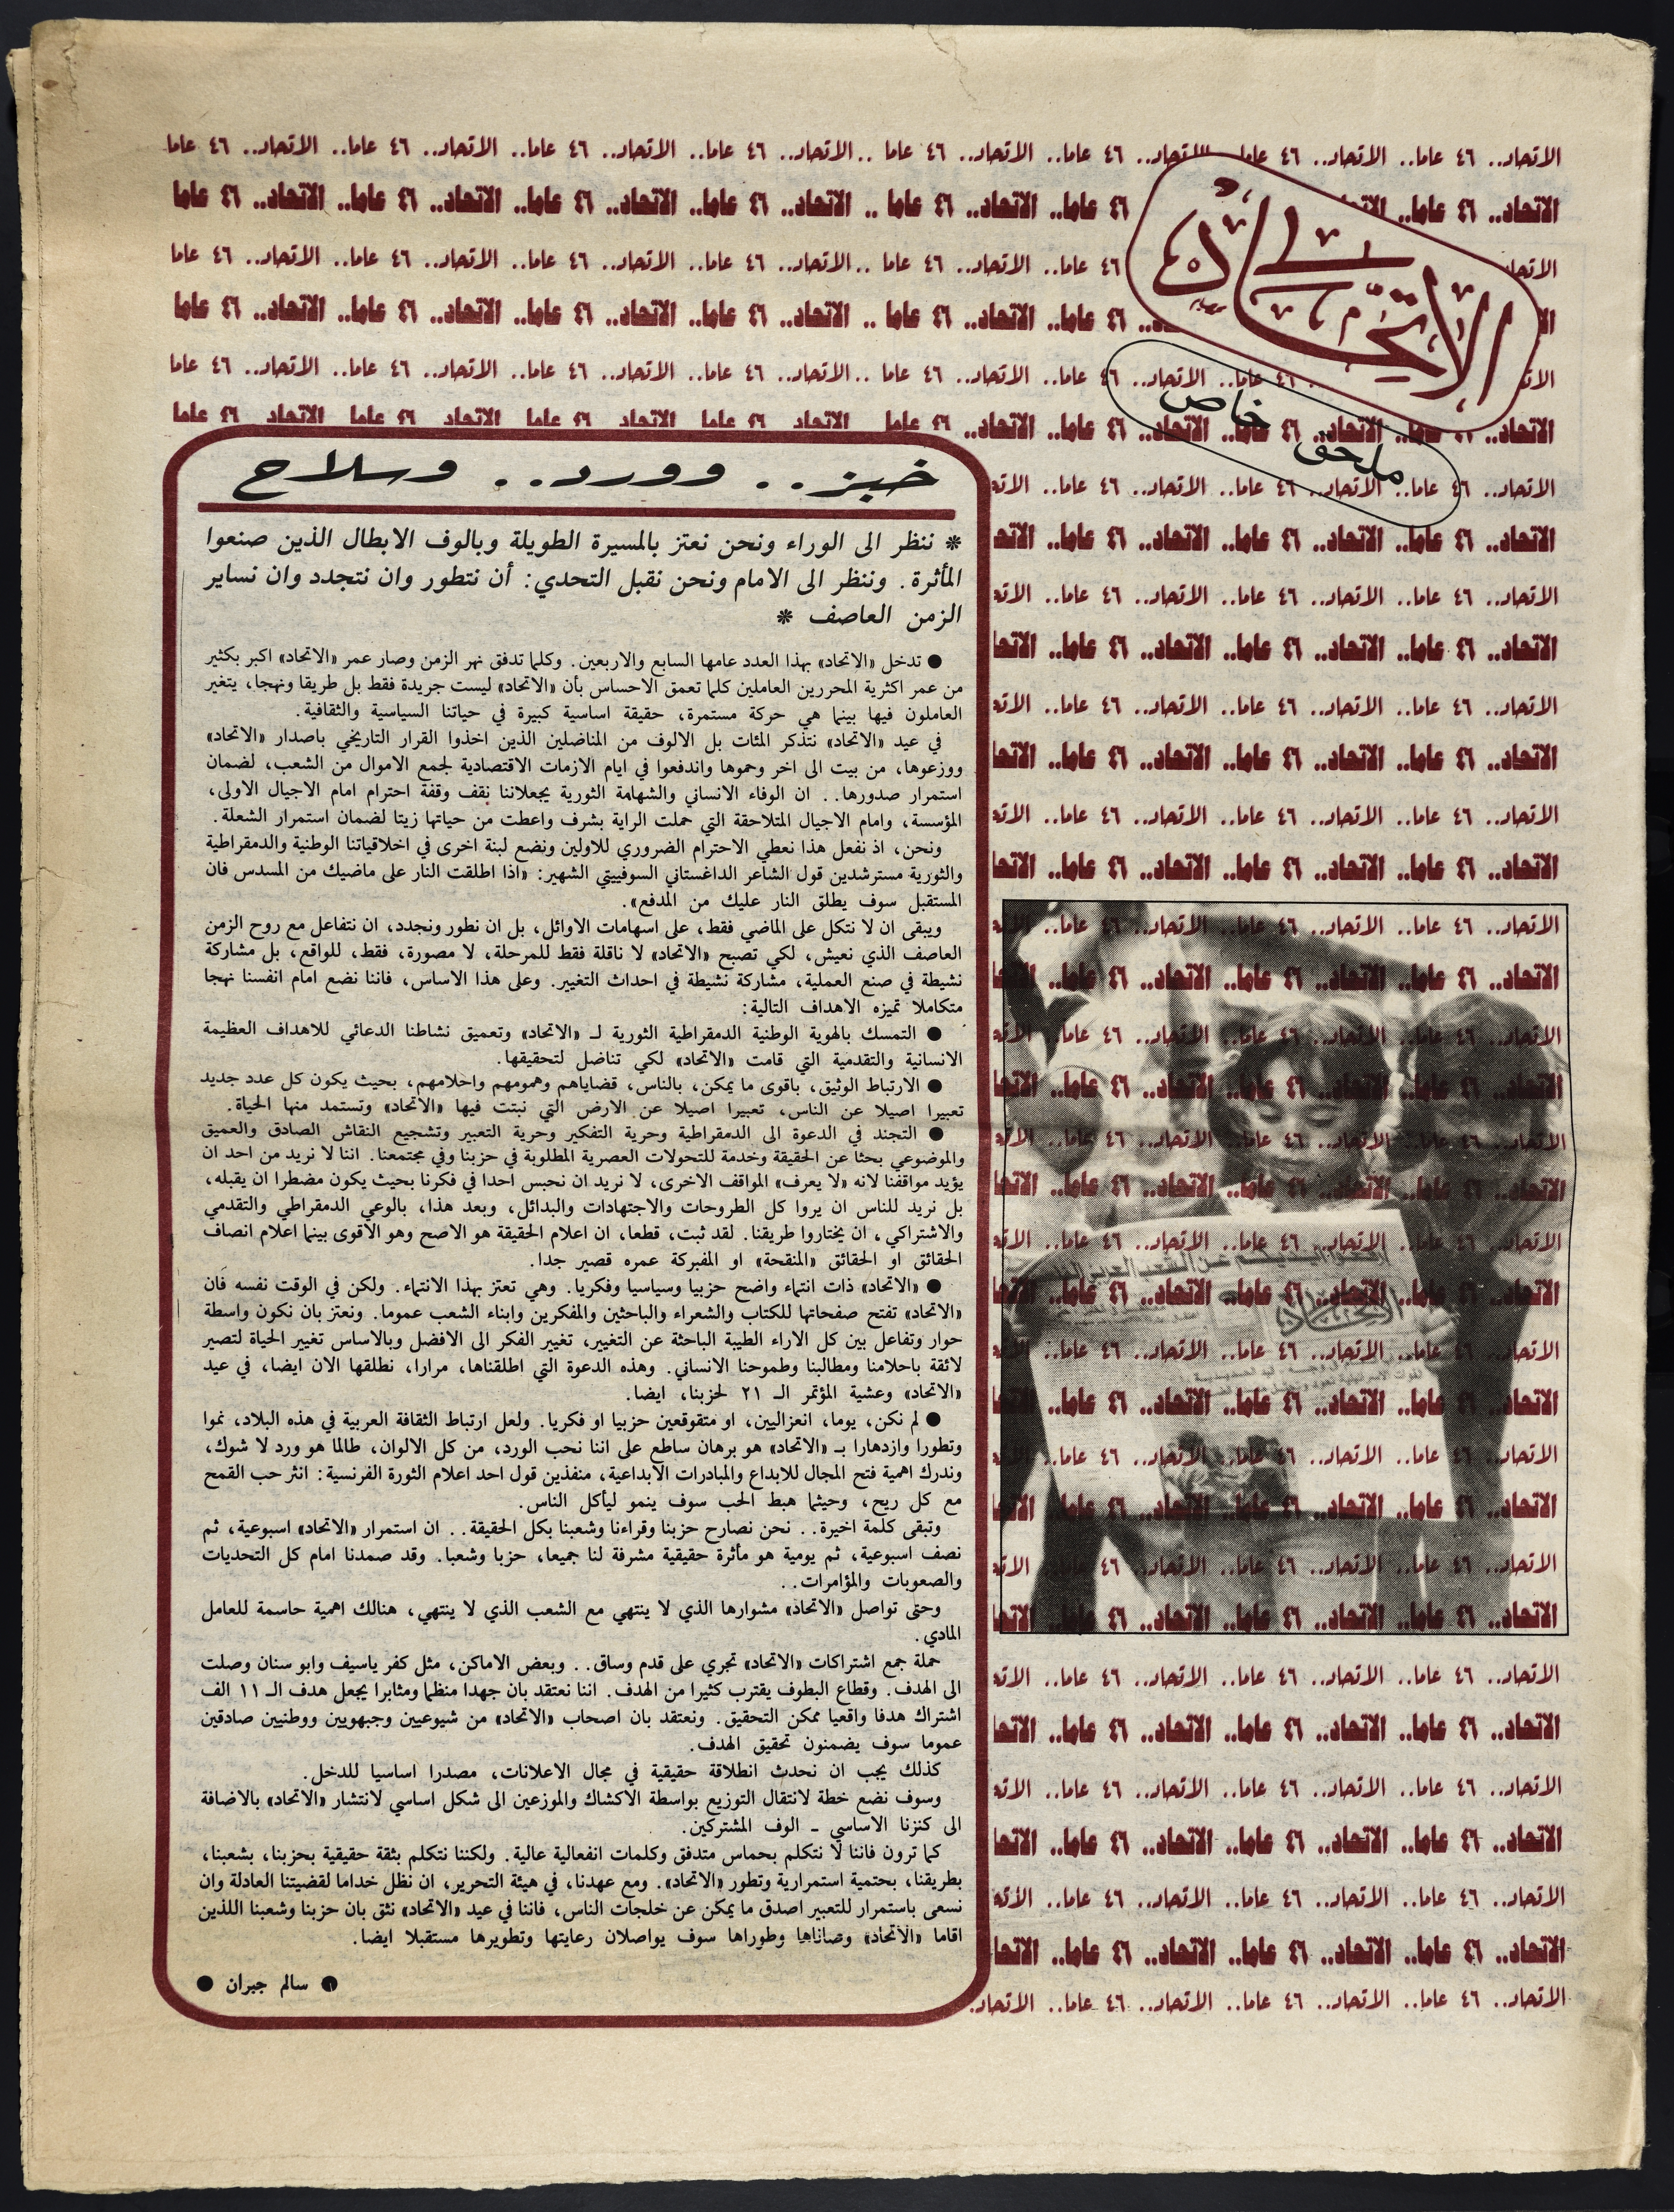 الاتحاد.. ٤٦ عاما.. الاتحاد.. ٤٦ عاما.. الاتحاد.. ٤٦ عاما.. الاتحاد.. ٤٦ عاما ..الاتحاد.. ٤٦ عاما.. الاتحاد.. ٤٦ عاما.. الاتحاد.. ٤٦ عاما.. الاتحاد.. ٤٦ عاما
الاتحاد
ملحق خاص
خبز.. وورد.. وسلاح
* ننظر الى الوراء ونحن نعتز بالمسيرة الطويلة وبالوف الابطال الذين صنعوا
المأثرة. وننظر الى الامام ونحن نقبل التحدي: أن نتطور وان نتجدد وان نساير
الزمن العاصف *
● تدخل «الاتحاد» بهذا العدد عامها السابع والاربعين. وكلما تدفق نهر الزمن وصار عمر «الاتحاد» اكبر بكثير
من عمر اكثرية المحررين العاملين كلما تعمق الاحساس بأن «الاتحاد» ليست جريدة فقط بل طريقا ونهجا، يتغير
العاملون فيها بينما هي حركة مستمرة، حقيقة اساسية كبيرة في حياتنا السياسية والثقافية.
في عيد «الاتحاد» نتذكر المئات بل الالوف من المناضلين الذين اخذوا القرار التاريخي باصدار «الاتحاد»
ووزعوها، من بيت الى اخر وحموها واندفعوا في ايام الازمات الاقتصادية لجمع الاموال من الشعب، لضمان
استمرار صدورها.. ان الوفاء الانساني والشهامة الثورية يجعلاننا نقف وقفة احترام امام الاجيال الاولى،
المؤسسة، وامام الاجيال المتلاحقة التي حملت الراية بشرف واعطت من حياتها زيتا لضمان استمرار الشعلة.
ونحن، اذ نفعل هذا نعطي الاحترام الضروري للاولين ونضع لبنة اخرى في اخلاقياتنا الوطنية والدمقراطية
والثورية مسترشدين قول الشاعر الداغستاني السوفييتي الشهير: «اذا اطلقت النار على ماضيك من المسدس فان
المستقبل سوف يطلق النار عليك من المدفع».
ويبقى ان لا نتكل على الماضي فقط، على اسهامات الاوائل، بل ان نطور ونجدد، ان نتفاعل مع روح الزمن
العاصف الذي نعيش، لكي تصبح «الاتحاد» لا ناقلة فقط للمرحلة، لا مصورة، فقط، للواقع، بل مشاركة
نشيطة في صنع العملية، مشاركة نشيطة في احداث التغيير. وعلى هذا الاساس، فاننا نضع امام انفسنا نهجا
متكاملا تميزه الاهداف التالية:
● التمسك بالهوية الوطنية الدمقراطية الثورية لـ «الاتحاد» وتعميق نشاطنا الدعائي للاهداف العظيمة
الانسانية والتقدمية التي قامت «الاتحاد» لكي تناضل لتحقيقها.
● الارتباط الوثيق، باقوى ما يمكن، بالناس، قضاياهم وهمومهم واحلامهم، بحيث يكون كل عدد جديد
تعبيرا اصيلا عن الناس، تعبيرا اصيلا عن الارض التي نبتت فيها «الاتحاد» وتستمد منها الحياة.
● التجند في الدعوة الى الدمقراطية وحرية التفكير وحرية التعبير وتشجيع النقاش الصادق والعميق
والموضوعي بحثا عن الحقيقة وخدمة للتحولات العصرية المطلوبة في حزبنا وفي مجتمعنا. اننا لا نريد من احد ان
يؤيد مواقفنا لانه «لا يعرف» المواقف الاخرى، لا نريد ان نحبس احدا في فكرنا بحيث يكون مضطرا ان يقبله،
بل نريد للناس ان يروا كل الطروحات والاجتهادات والبدائل، وبعد هذا، بالوعي الدمقراطي والتقدمي
والاشتراكي، ان يختاروا طريقنا. لقد ثبت، قطعا، ان اعلام الحقيقة هو الاصح وهو الاقوى بينما اعلام انصاف
الحقائق او الحقائق «المنقحة» او المفبركة عمره قصير جدا.
● «الاتحاد» ذات انتماء واضح حزبيا وسياسيا وفكريا. وهي تعتز بهذا الانتماء. ولكن في الوقت نفسه فان
«الاتحاد» تفتح صفحاتها للكتاب والشعراء والباحثين والمفكرين وابناء الشعب عموما. ونعتز بان نكون واسطة
حوار وتفاعل بين كل الاراء الطيبة الباحثة عن التغيير، تغيير الفكر الى الافضل وبالاساس تغيير الحياة لتصير
لائقة باحلامنا ومطالبنا وطموحنا الانساني. وهذه الدعوة التي اطلقناها، مرارا، نطلقها الان ايضا، في عيد
«الاتحاد» وعشية المؤتمر الـ ٢١ لحزبنا، ايضا.
● لم نكن، يوما، انعزاليين، او متقوقعين حزبيا او فكريا. ولعل ارتباط الثقافة العربية في هذه البلاد، نموا
وتطورا وازدهارا بـ «الاتحاد» هو برهان ساطع على اننا نحب الورد، من كل الالوان، طالما هو ورد لا شوك،
وندرك اهمية فتح المجال للابداع والمبادرات الابداعية، منفذين قول احد اعلام الثورة الفرنسية: انثر حب القمح
مع كل ريح، وحيثما هبط الحب سوف ينمو ليأكل الناس.
وتبقى كلمة اخيرة.. نحن نصارح حزبنا وقراءنا وشعبنا بكل الحقيقة.. ان استمرار «الاتحاد» اسبوعية، ثم
نصف اسبوعية، ثم يومية هو مأثرة حقيقية مشرفة لنا جميعا، حزبا وشعبا. وقد صمدنا امام كل التحديات
والصعوبات والمؤامرات..
وحتى تواصل «الاتحاد» مشوارها الذي لا ينتهي مع الشعب الذي لا ينتهي، هنالك اهمية حاسمة للعامل
المادي.
حملة جمع اشتراكات «الاتحاد» تجري على قدم وساق.. وبعض الاماكن، مثل كفر ياسيف وابو سنان وصلت
الى الهدف. وقطاع البطوف يقترب كثيرا من الهدف. اننا نعتقد بان جهدا منظما ومثابرا يجعل هدف الـ ١١ الف
اشتراك هدفا واقعيا ممكن التحقيق. ونعتقد بان اصحاب «الاتحاد» من شيوعيين وجبهويين ووطنيين صادقين
عموما سوف يضمنون تحقيق الهدف.
كذلك يجب ان نحدث انطلاقة حقيقية في مجال الاعلانات، مصدرا اساسيا للدخل.
وسوف نضع خطة لانتقال التوزيع بواسطة الاكشاك والموزعين الى شكل اساسي لانتشار «الاتحاد» بالاضافة
الى كنزنا الاساسي ـ الوف المشتركين.
كما ترون فاننا لا نتكلم بحماس متدفق وكلمات انفعالية عالية. ولكننا نتكلم بثقة حقيقية بحزبنا، بشعبنا،
بطريقنا، بحتمية استمرارية وتطور «الاتحاد». ومع عهدنا، في هيئة التحرير، ان نظل خداما لقضيتنا العادلة وان
نسعى باستمرار للتعبير اصدق ما يمكن عن خلجات الناس، فاننا في عيد «الاتحاد» نثق بان حزبنا وشعبنا اللذين
اقاما «الاتحاد» وصاناها وطوراها سوف يواصلان رعايتها وتطويرها مستقبلا ايضا.
● سالم جبران ●